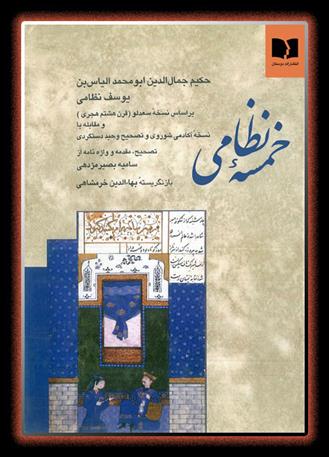 انتشارات دوستان
حکیم جمال‌الدین ابومحمد الیاس‌بن
یوسف نظامی
براساس نسخه سعدلو (قرن هشتم هجری)
و مقابله با
نسخه آکادمی شوروی و تصحیح وحید دستگردی
تصحیح، مقدمه و واژه نامه از
سامیه بصیر مژدهی
بازنگریسته بهاءالدین خرمشاهی
خمسهٔ نظامی